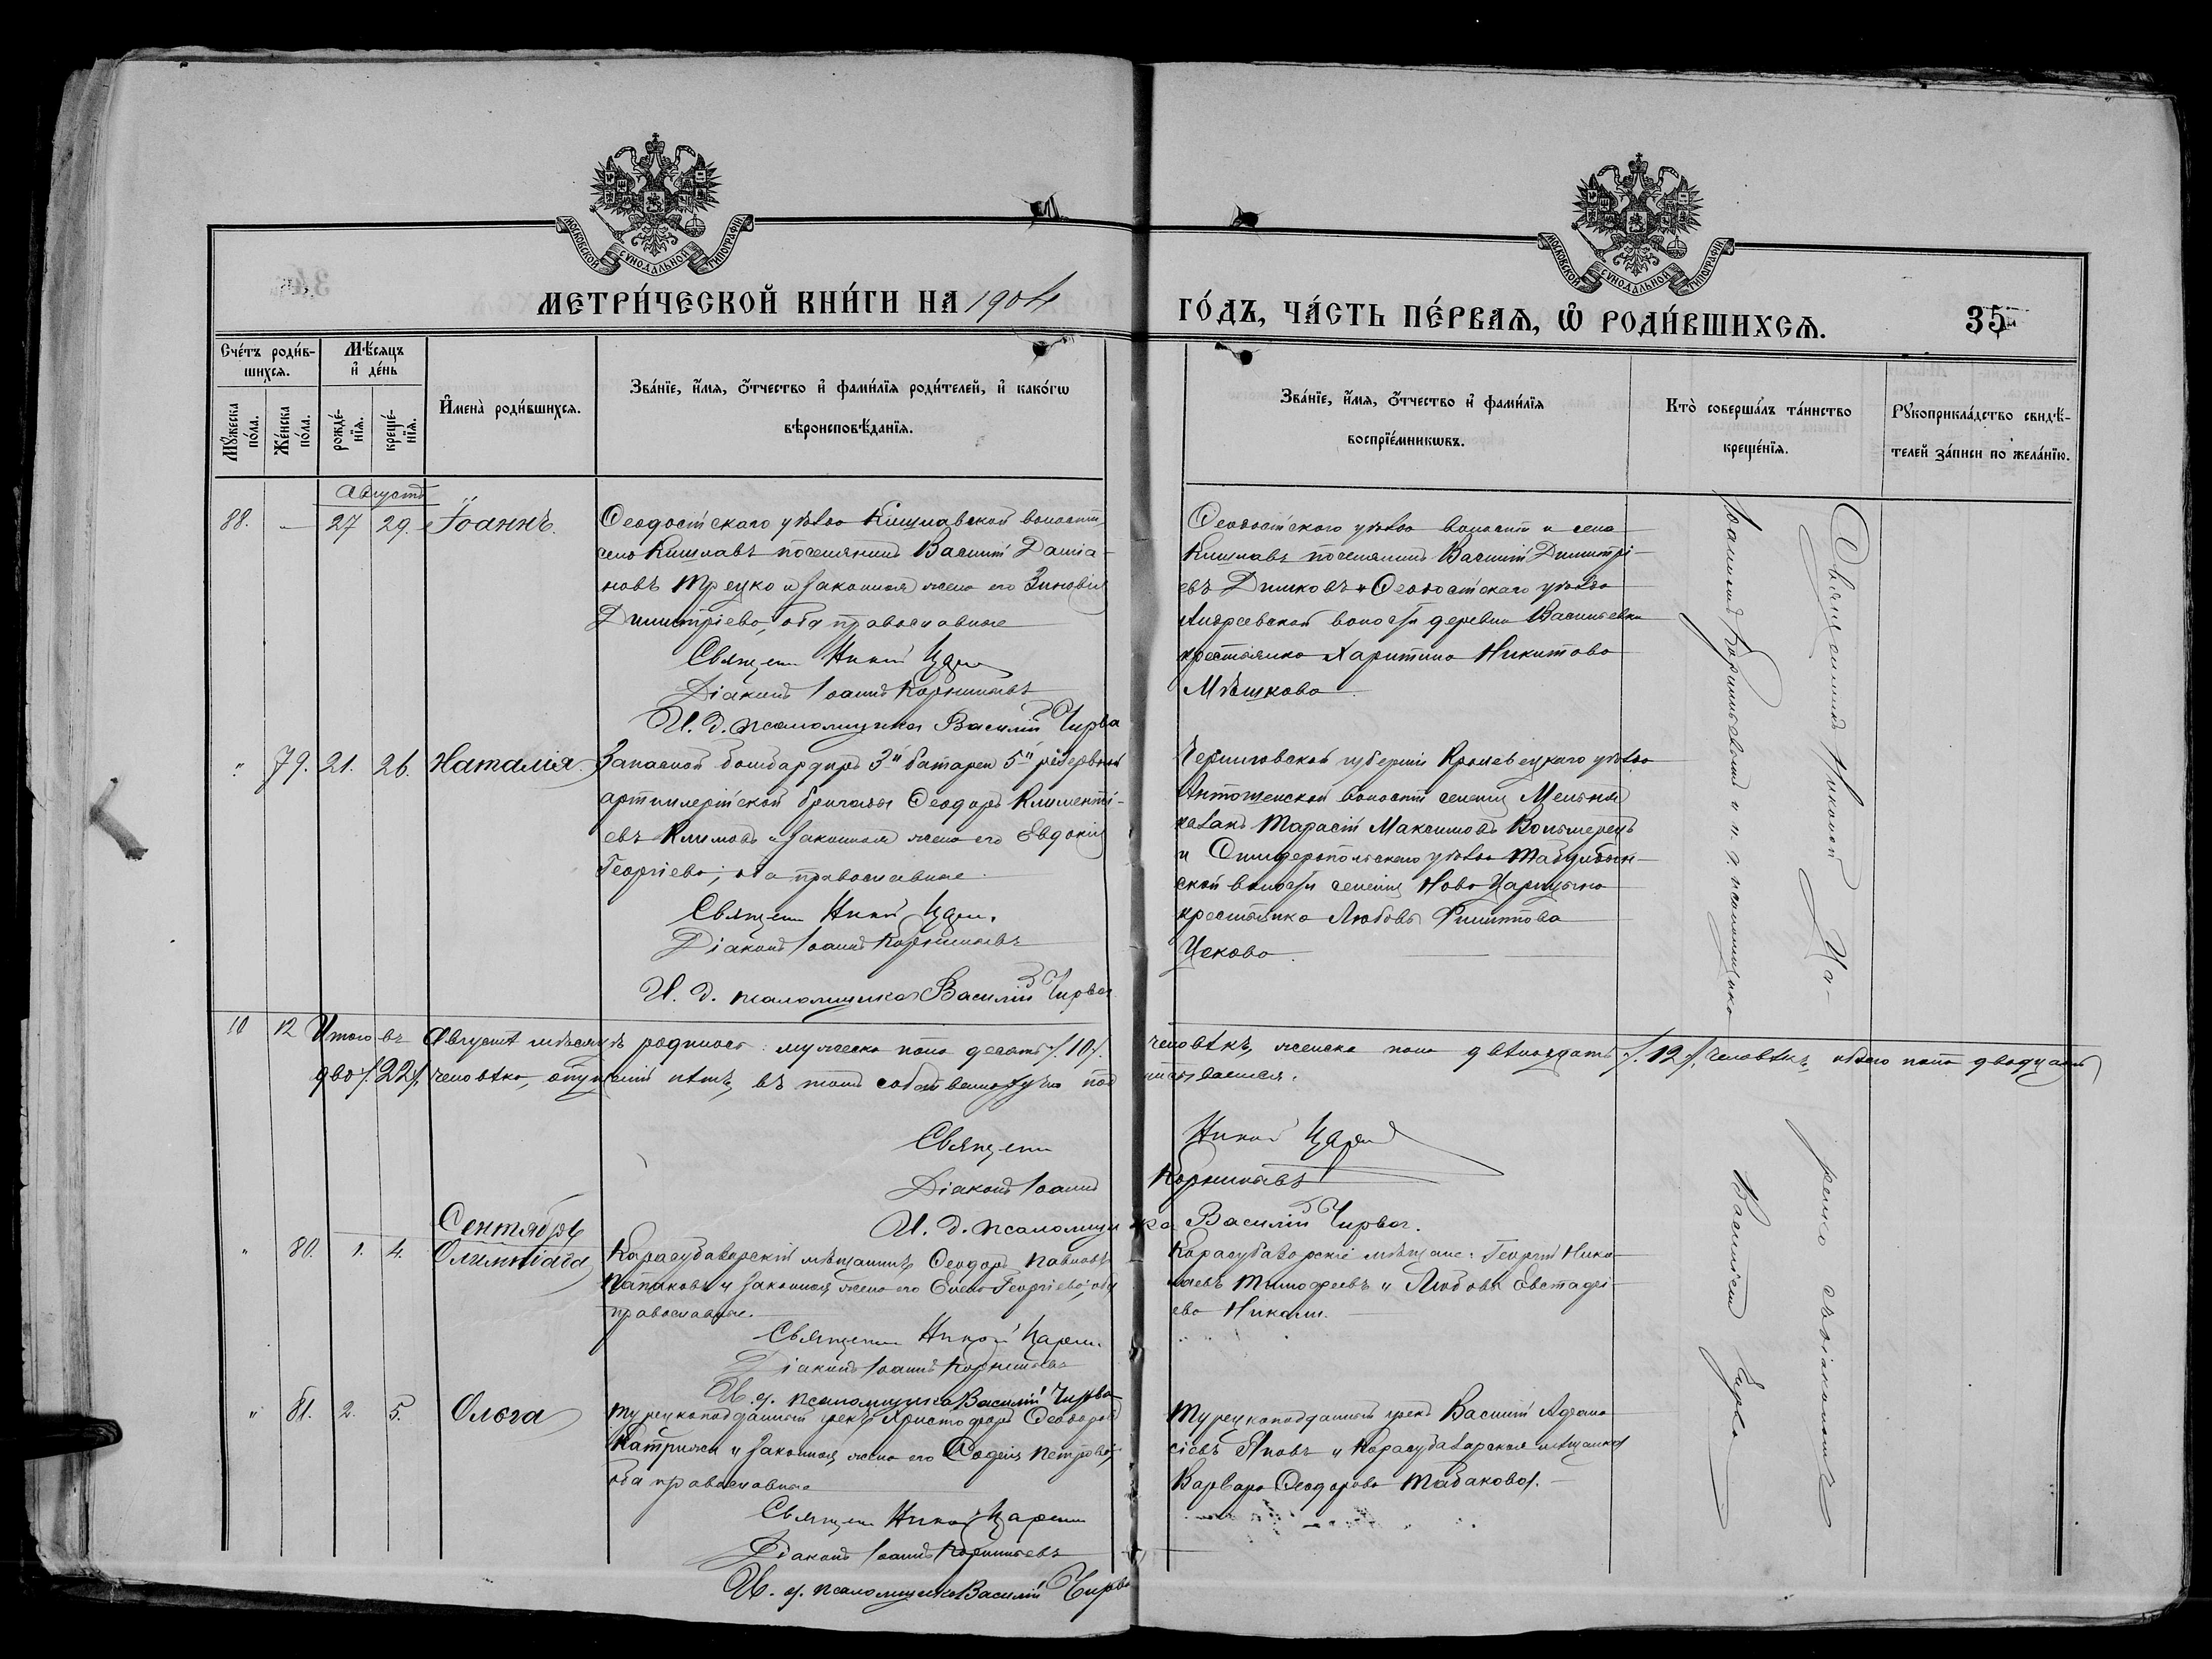 МОСКОВСКОЙ СѴНОДАЛЬНОЙ ТИПОГРАФІИ
МОСКОВСКОЙ СѴНОДАЛЬНОЙ ТИПОГРАФІИ
МЕТРИ́ЧЕСКОЙ КНИ́ГИ НА 1904
ГО́ДЪ, ЧА́СТЬ ПЕ́РВАѦ, Ѽ РОДИ́ВШИХСѦ.
35
Сче́тъ роди́в-
шихсѧ.
Мꙋжеска по́ла.
Же́нска по́ла.
Мѣ́сѧцъ
и҆ де́нь
рожде́-
нїѧ.
креще́-
нїѧ.
И҆мена̀ роди́вшихсѧ.
Зва́нїе, и҆́мѧ, ѻ҆́тчество и҆ фами́лїѧ роди́телей, и҆ како́гѡ
вѣроисповѣ́данїѧ.
Зва́нїе, и҆́мѧ, ѻ҆́тчество и҆ фами́лїѧ
воспрїе́мникѡвъ.
Кто̀ соверша́лъ та́инство
креще́нїѧ.
Рꙋкоприкла́дство свидѣ́-
телей за́писи по жела́нїю.
Августъ
88. — 27 29. Іоаннъ.
Ѳеодосійскаго уѣзда Кишлавской волости,
село Кишлавъ поселянинъ Василій Даміа-
новъ Трецко и законная жена его Зиновія
Димитріева, оба православные
Священ Никол Цари
Діаконъ Іоаннъ Корнильевъ
И. д. псаломщика Василій Чирва
Ѳеодосійскаго уѣзда волости и села
Кишлавъ поселянинъ Василій Димитрі-
евъ Димковъ и Ѳеодосійскаго уѣзда
Андреевской волости деревни Васильевки
крестьянка Харитина Никитова
Мѣшкова
" 79. 21. 26. Наталія.
Запасной бомбардиръ 3й батареи 5й резервной
артиллерійской бригады Ѳеодоръ Климентi-
евъ Климовъ и законная жена его Евдокія
Георгіева, оба православные
Священ Никол Цари.
Діаконъ Іоаннъ Корнильевъ
И. д. псаломщика Василій Чирва
Черниговской губерніи Кролевецкаго уѣзда
волости селенія
казакъ Тарасій Максимовъ
и Симферопольскаго уѣзда Табулдын-
ской волости селенія Ново Царицыно
крестьянка Любовь Филиппова
Цекова
10 12 Итого въ Августѣ мѣсяцѣ родилось: мужеска пола десять /10/. человѣкъ, женска пола двѣнадцать /12/ человѣкъ, обоего пола двадцать
два /22/ человѣка, опущеній нѣтъ, въ томъ собственноручно подписываемся.
Священ Никол Цари
Діаконъ Іоаннъ Корнильевъ
И. д. псаломщика Василій Чирва.
Сентябрь
" 80. 1. 4. Олимпіада
Карасубазарскій мѣщанинъ Ѳеодоръ Павловъ
Папаковъ и законная жена его Елена Георгіева, оба
православные.
Священник Никол Цари.
Діаконъ Іоаннъ Корнильевъ
И. д. псаломщика Василій Чирва
Карасубазарскіе мѣщане: Георгій Нико-
лаевъ Тимофеевъ и Любовь Евстафі-
ева Николи.
" 81. 2. 5. Ольга
Турецкоподданный грекъ Христофоръ Ѳеодоровъ
Катрижи и законная жена его Софія Петрова,
оба православные
Священ Никол Царен
Діаконъ Іоаннъ Корнильевъ
И. д. псаломщика Василій Чирва
Турецкоподданный грекъ Василій Афана-
сіевъ Яковъ и Карасубазарская мѣщанка
Варвара Ѳеодорова Табакова.
Священникъ Николай Ца-
ренко съ діакономъ
Іоанномъ Корнильевымъ и и. д. псаломщика
Василіемъ Чирва